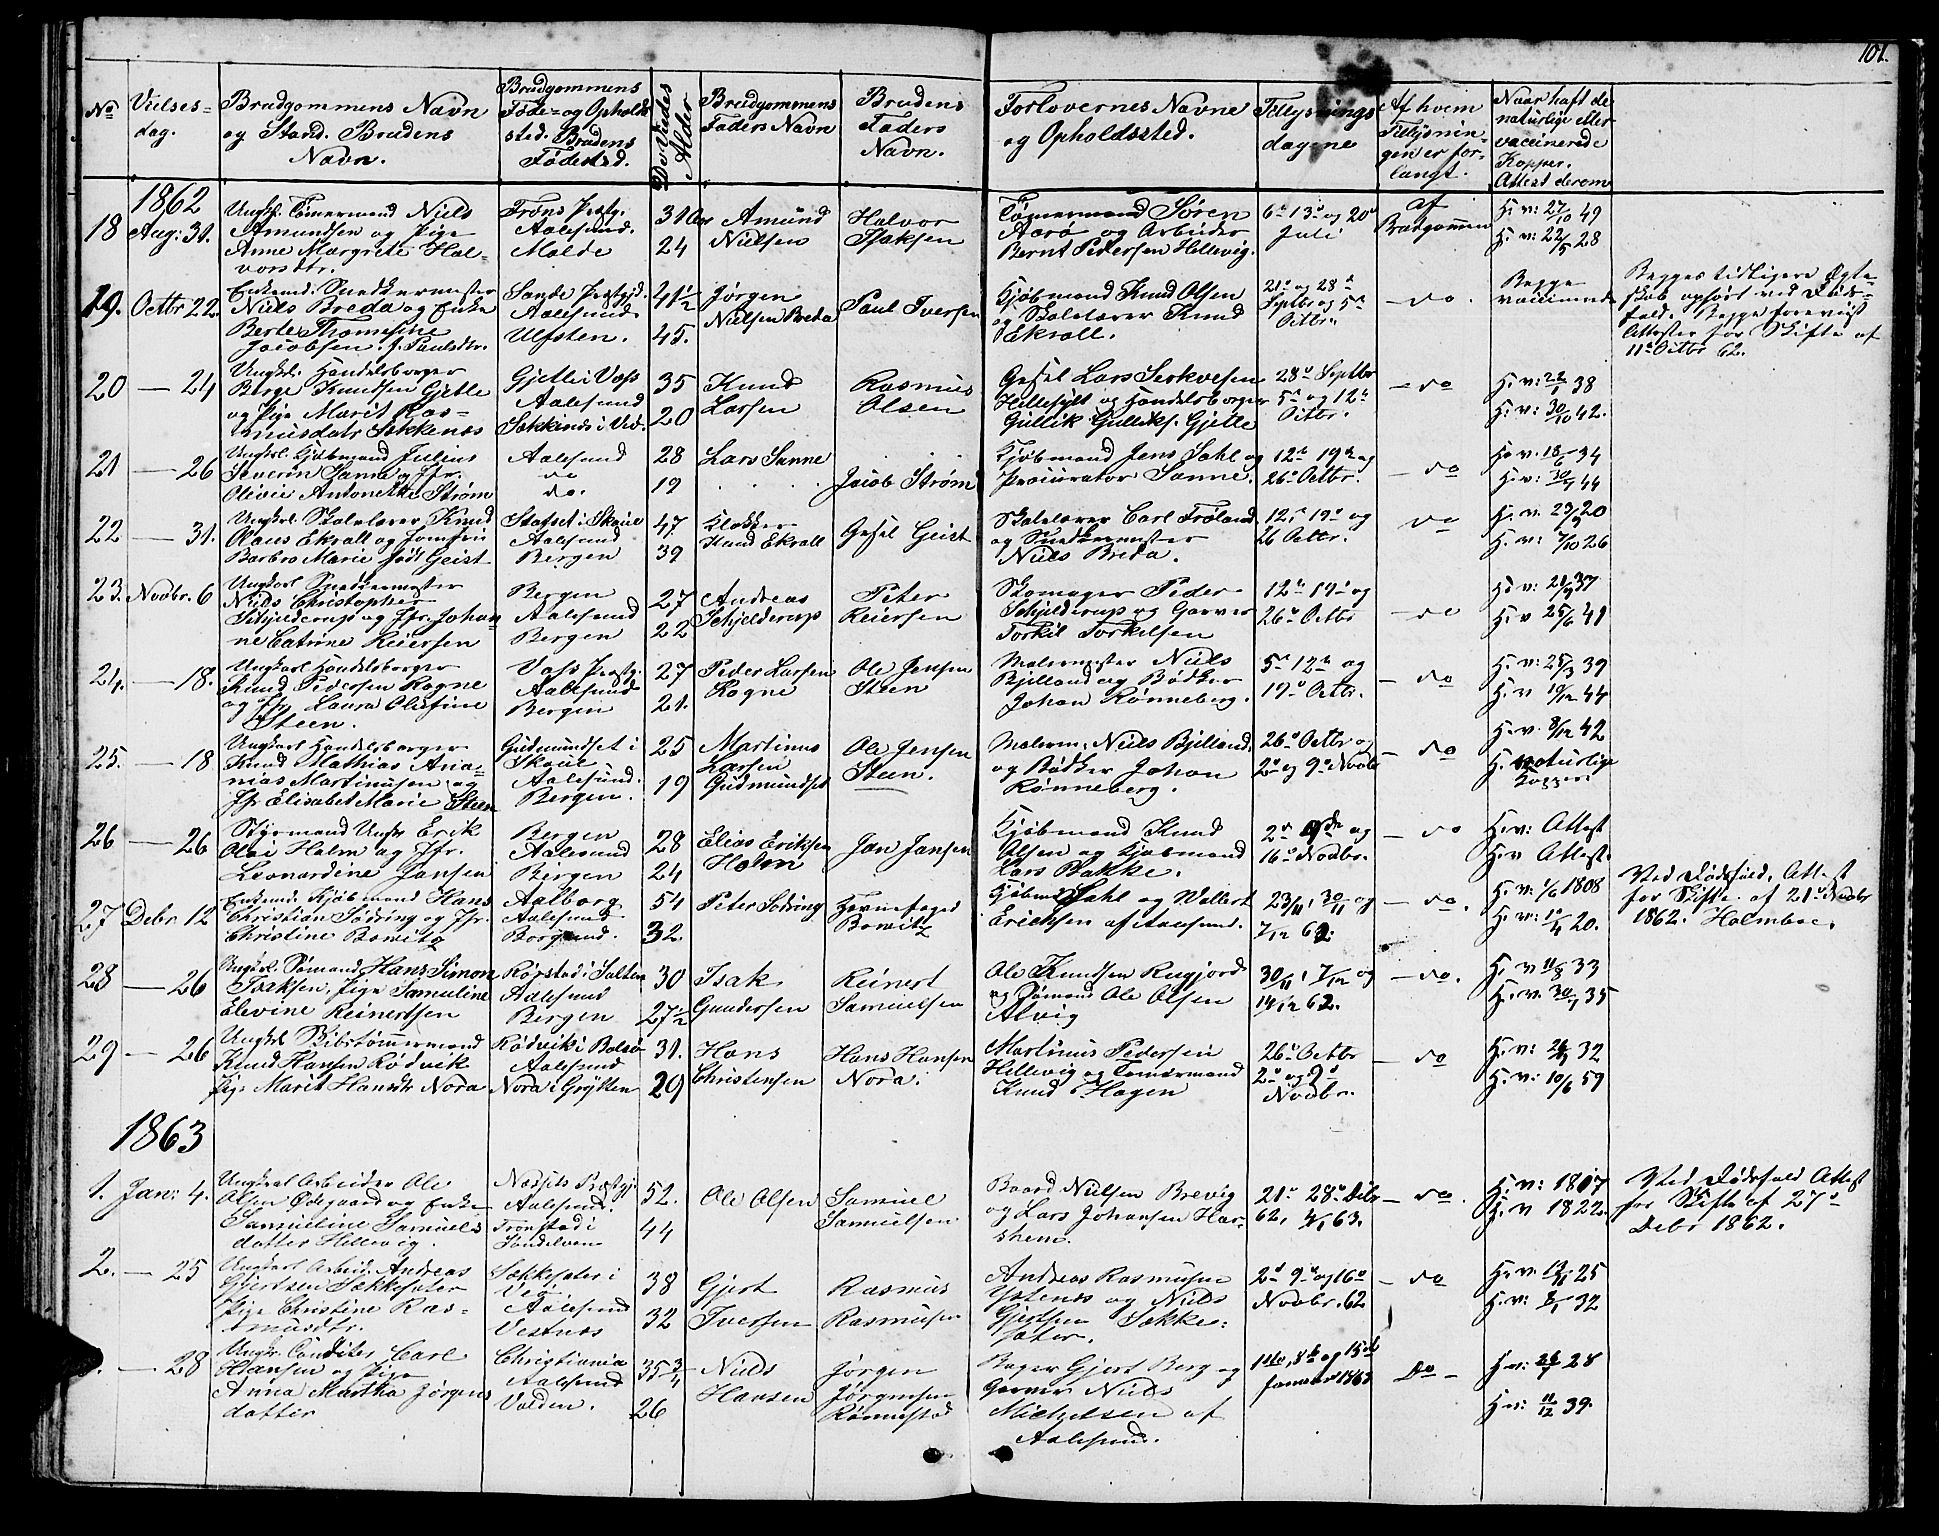 101.
No
Vielses-
dag.
Brudgommens Navn
og Stand. Brudens
Navn.
Brudgommens
Føde- og Opholds
sted. Brudens
Fødested.
De Viedes
Alder
Brudgommens
Faders Navn
Brudens
Faders
Navn.
Forlovernes Navne
og Opholdssted.
Tillysnings
dagene
Af hvem
Tillysnin-
gen er for-
langt.
Naar haft de
naturlige eller
vaccinerede
Kopper.
Attest derom
1862
18 Aug: 31.
Ungk. Tømermand Niels
Amundsen og Pige
Anne Margrete Hal-
vorsdtr.
Aalesund.
Molde
31
24
Amund
Nielsen
Halvor
Isaksen
Tømermand Søren
Aarø og Arbeider
Bernt Pedersen Hellevig.
6te 13de og 20de
Juli
af
Brudgommen
H. v: 27/10 49
H. v: 22/5 28
19. Octbr 22.
Enkemd. Snedkermester
Niels Breda og Enke
Berte Thomesine
Jacobsen f. Paulsdtr.
Sande Præstgjd.
Aalesund
Ulfsten.
41 1/2
45.
Jørgen
Nielsen Breda
Paul Iversen
Kjøbmand Knud Olsen
og Skolelærer Knud
Ekroll.
21de og 28de
Septbr og 5te
Octbr.
— do.
Begge
vaccinerede
Begges tidligere Ægte-
skab ophørt ved Døds-
fald. Begge foreviist
Attester for Skifte af
11te Octbr 62.
20 — 24
Ungkl. Handelsborger
Børge Knudsen Gjelle
og Pige Marit Ras-
musdatr Sækkenæs
Gjelle i Voss
Aalesund
Sækkenæs i Veø.
35
20
Knud
Larsen
Rasmus
Olsen
Gesel Lars Serkvesen
Hellesylt og Handelsborger
Gullik Gulliks. Gjelle
28de Septbr
5te og 12te
Octbr.
— do
H. v: 22/1 38
H. v: 30/10 42.
21 — 26
Ungkl. Kjøbmand Julius
Severin Sanne og Jfr.
Olivie Antonette Strøm
Aalesund
do
do.
28
19
Lars Sanne
Jacob Strøm
Kjøbmand Jens Dahl og
Procurator Sanne.
12te 19de og
26de Octbr.
— do
H. v. 18/6 34
H. v: 30/7 44
22 — 31.
Ungkl. Skolelærer Knud
Claus Ekroll og Jomfru
Barbro Marie født Geist
Stafset i Skoue
Aalesund
Bergen
47.
39
Klokker
Knud Ekroll
Gesel Geist
Skolelærer Carl Frøland
og Snedkermester
Niels Breda.
12te 19de og
26 Octbr.
do
H. v. 23/9 20
H. v: 7/10 26
23. Novbr. 6
Ungkarl Snedkermester
Niels Christopher
Schjelderup og Jfr. Johan-
ne Catrine Reiersen
Bergen
Aalesund
Bergen
27
22
Andreas
Schjelderup
Peter
Reiersen
Skomager Peder
Schjelderup og Garver
Torkil Torkelsen
12te 19de og
26de Octbr
— do
H. v: 21/9 37
H. v 25/6 41
24. — 18.
Ungkarl Handelsborger
Knud Pedersen Rogne
og Jfr Laura Olufine
Steen.
Voss Præstg.
Aalesund
Bergen
27
21.
Peder Larsen
Rogne
Ole Jensen
Steen
Malermester Niels
Bjelland og Bødker
Johan Rønneberg.
5te 12te og
19de Octbr.
— do
H. v: 25/3 39
H. v 19/12 44
25. — 18
Ungkarl Handelsborger
Knud Mathias Ana-
nias Martinusen og
Jfr Elisabet Marie Steen
Gudmundset i
Skoue
Aalesund.
Bergen.
25
19
Martinus
Larsen
Gudmundset
Ole Jensen
Steen.
Malerm. Niels Bjelland.
og Bødker Johan
Rønneberg.
26de Octbr og
2de og 9de Novbr
— do
H. v: 8/12 42
H. naturlige
Kopper.
26 — 26
Styrmand Ungk. Erik
Olai Holm og Jfr.
Leonardine Jansen
Bergen
Aalesund
Bergen
28
24
Elias Eriksen
Holm
Jan Jansen
Kjøbmand Knud
Olsen og Kjøbmand
Lars Bakke.
2de 9de og
16de Novbr.
— do
H. v: Attest
H. v Attest
27 Debr 12
Enkemd. Kjøbmand Hans
Christian Sødring og Jfr.
Christine Bowitz
Aalborg
Aalesund
Borgund.
54
32.
Peter Sødring
Havnefoged
Bowitz
Kjøbmd Dahl og Wellert
Ericksen af Aalesund.
23/11, 30/11 og
7/12 62
— do.
H. v: 1/6 1808
H. v: 11/4 20.
Ved Dødsfald. Attest
for Skifte af 21de Novbr
1862. Holmboe.
28 — 26
Ungkl. Sømand Hans Simon
Isaksen. Pige Samueline
Elevine Reinertsen
Rørstad i Salten
Aalesund
Bergen
30
27 1/2
Isak
Gundersen
Reinert
Samuelsen
Ole Knudsen Rusgjord
og Sømand Ole Olsen
Alvig
30/11, 7/12 og
14/12 62.
— do.
H. v 11/8 33
H. v. 30/7 35
29 — 26
Ungkl. Skibstømmermand
Knud Hansen Rødvik
Pige Marit Hansdtr Nora
Rødvik i Bolsø
Aalesund
Nora i Grytten
31.
29
Hans
Christensen
Hans Hansen
Nora.
Martinus Pedersen
Hellevig og Tømermand
Knud Hagen
26de Octbr
2de og 9de
Novbr.
— do
H. v: 32
H. v: 10/6 59
1863
1. Jan: 4.
Ungkarl Arbeider Ole
Olsen Ødegaard og Enke
Samueline Samuels
datter Hellevig.
Nessets Præstgj.
Aalesund.
Trønstad i
Søndelven
52.
44
Ole Olsen
Samuel
Samuelsen
Baard Nielsen Brevig
og Lars Johansen Har-
shem.
21de 28de Debr
62, 4/1 63.
— do.
H. v: 1817
H. v 1822.
Ved Dødsfald Attest
for Skifte af 27de
Debr 1862.
2. — 25
Ungkarl Arbeid. Andreas
Gjertsen Sækkesæter
Pige Christine Ras-
musdtr.
Sækkesæter i
Veø
Aalesund
Vestnæs
38
32
Gjert
Iversen
Rasmus
Rasmusen
Andreas Rasmusen
Ystenæs og Niels
Gjertsen Sække-
sæter.
2de 9de og 16de
Novbr. 62
— do
H. v. 25
H. v: 8/1 32
— 28
Ungk. Conditer Carl
Hansen og Pige
Anna Martha Jørgens
datter
Christiania
Aalesund
Volden.
35 3/4
26
Niels
Hansen
Jørgen
Jørgensen
Rønnestad
Bager Gjert Berg og
Garver Niels
Michelsen af
Aalesund.
1ste, 8de og 15de
Januar 1863
Do —
H. v: 26/7 28
H. v: 11/12 39.